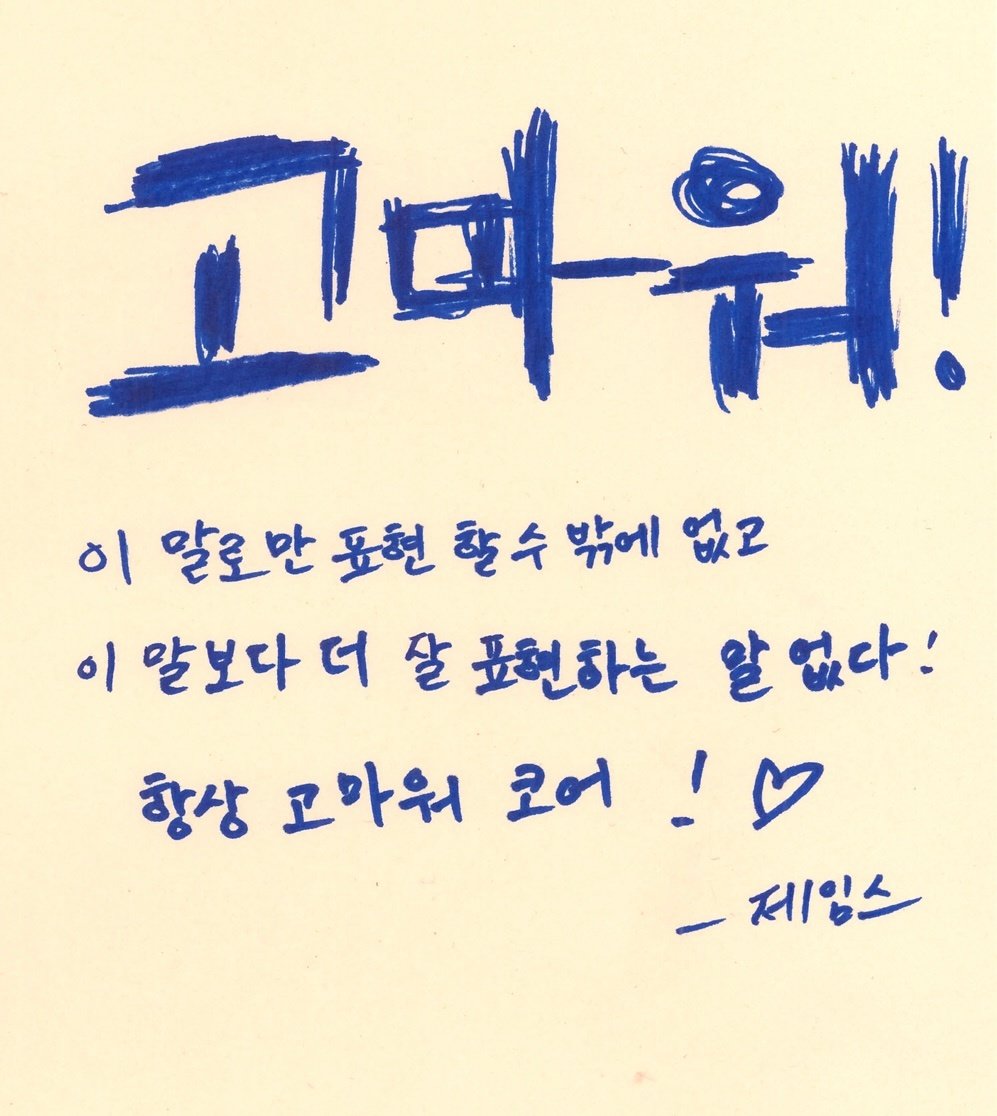 고마워!
이 말로만 표현 할 수 밖에 없고
이 말보다 더 잘 표현하는 말 없다!
항상 고마워 코어 ! ♡
_ 제임스